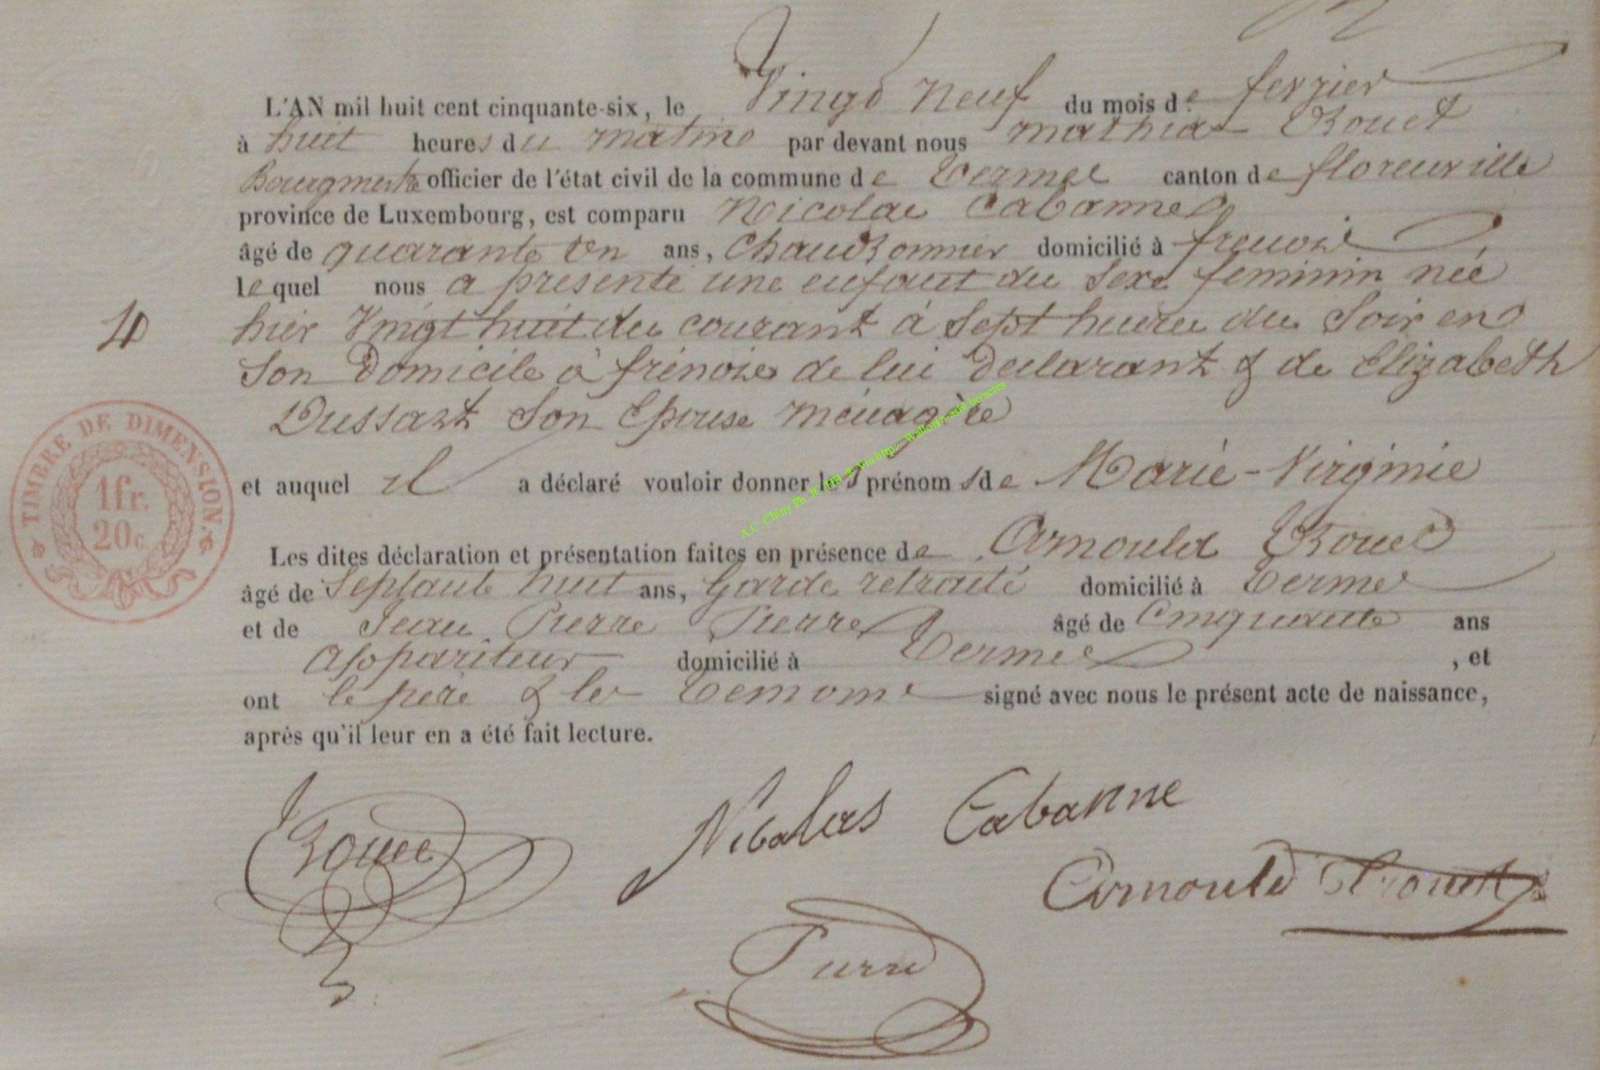 L'AN mil huit cent cinquante-six, le Vingt neuf du mois de fevrier
à huit heures du matino par devant nous mathias Rouet
Bourgmestre officier de l'état civil de la commune de termes canton de florenville
province de Luxembourg, est comparu Nicolas Cabanne
âgé de quarante un ans, Chaudronnier domicilié à frenois
lequel nous a présenté une enfant du Sexe feminin née
4
hier Vingt huit du courant à Sept heures du Soir en
Son Domicile à frenois de lui Declarant & de Elizabeth
Dussart Son Epouse menagère
et auquel il a déclaré vouloir donner les prénoms de Marie-Virginie
TIMBRE DE DIMENSION.
1fr.
20c.
Les dites déclaration et présentation faites en présence de Arnould Rouet
âgé de Septante huit ans, Garde retraité domicilié à termes
et de Jean Pierre Pierre âgé de Cinquante ans
Appariteur domicilié à termes, et
ont le père & les temoins signé avec nous le présent acte de naissance,
après qu'il leur en a été fait lecture.
Rouet
Nicolas Cabanne
Arnould Rouet
Pierre